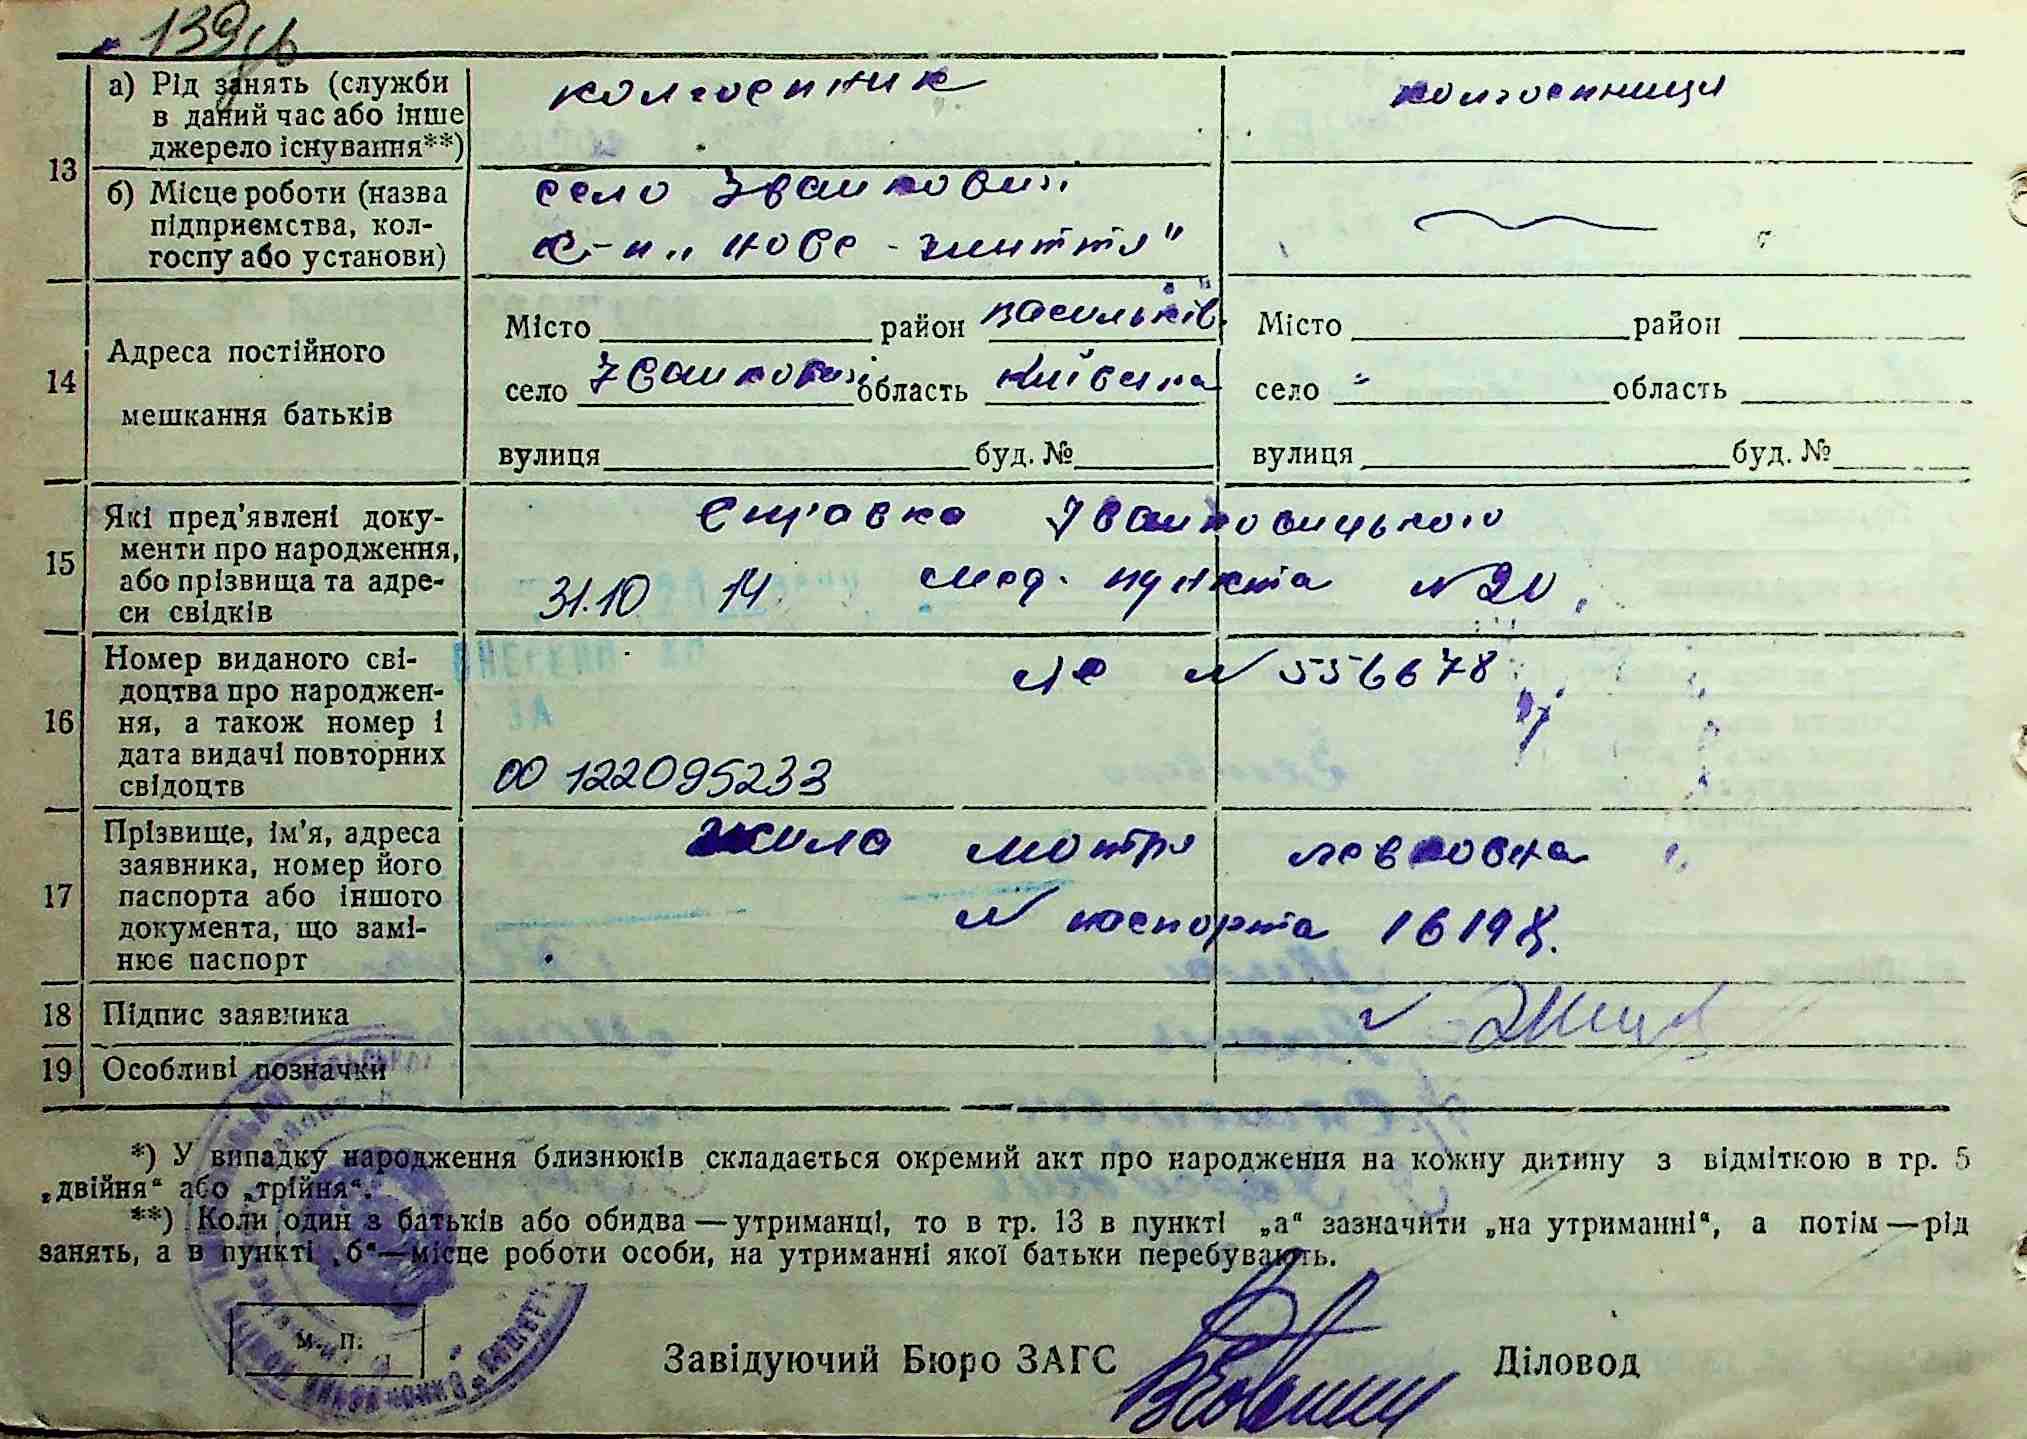 139
13
а) Рід занять (служби
в даний час або інше
джерело існування**)
колгоспник
колгоспниця
б) Місце роботи (назва
підприємства, кол-
госпу або установи)
село Іванковичі
к-п „нове-життя"
14
Адреса постійного
мешкання батьків
Місто район Васильків.
село Іванковичі область Київська
вулиця буд. №
Місто район
село " область
вулиця буд. №
15
Які пред'явлені доку-
менти про народження,
або прізвища та адре-
си свідків
Справка Іванковицького
31.10 14. мед. пункта N 20
16
Номер виданого сві-
доцтва про народжен-
ня, а також номер і
дата видачі повторних
свідоцтв
N 556678
00 122095233
17
Прізвище, ім'я, адреса
заявника, номер його
паспорта або іншого
документа, що замі-
нює паспорт
Жила Мотря Левковна
N паспорта 16198.
18
Підпис заявника
19
Особливі позначки
*) У випадку народження близнюків складається окремий акт про народження на кожну дитину з відміткою в гр. 5
„двійня“ або „трійня“.
**) Коли один з батьків або обидва — утриманці, то в гр. 13 в пункті „а“ зазначити „на утриманні“, а потім — рід
занять, а в пункті „б“ — місце роботи особи, на утриманні якої батьки перебувають.
М. П.
Завідуючий Бюро ЗАГС
Діловод